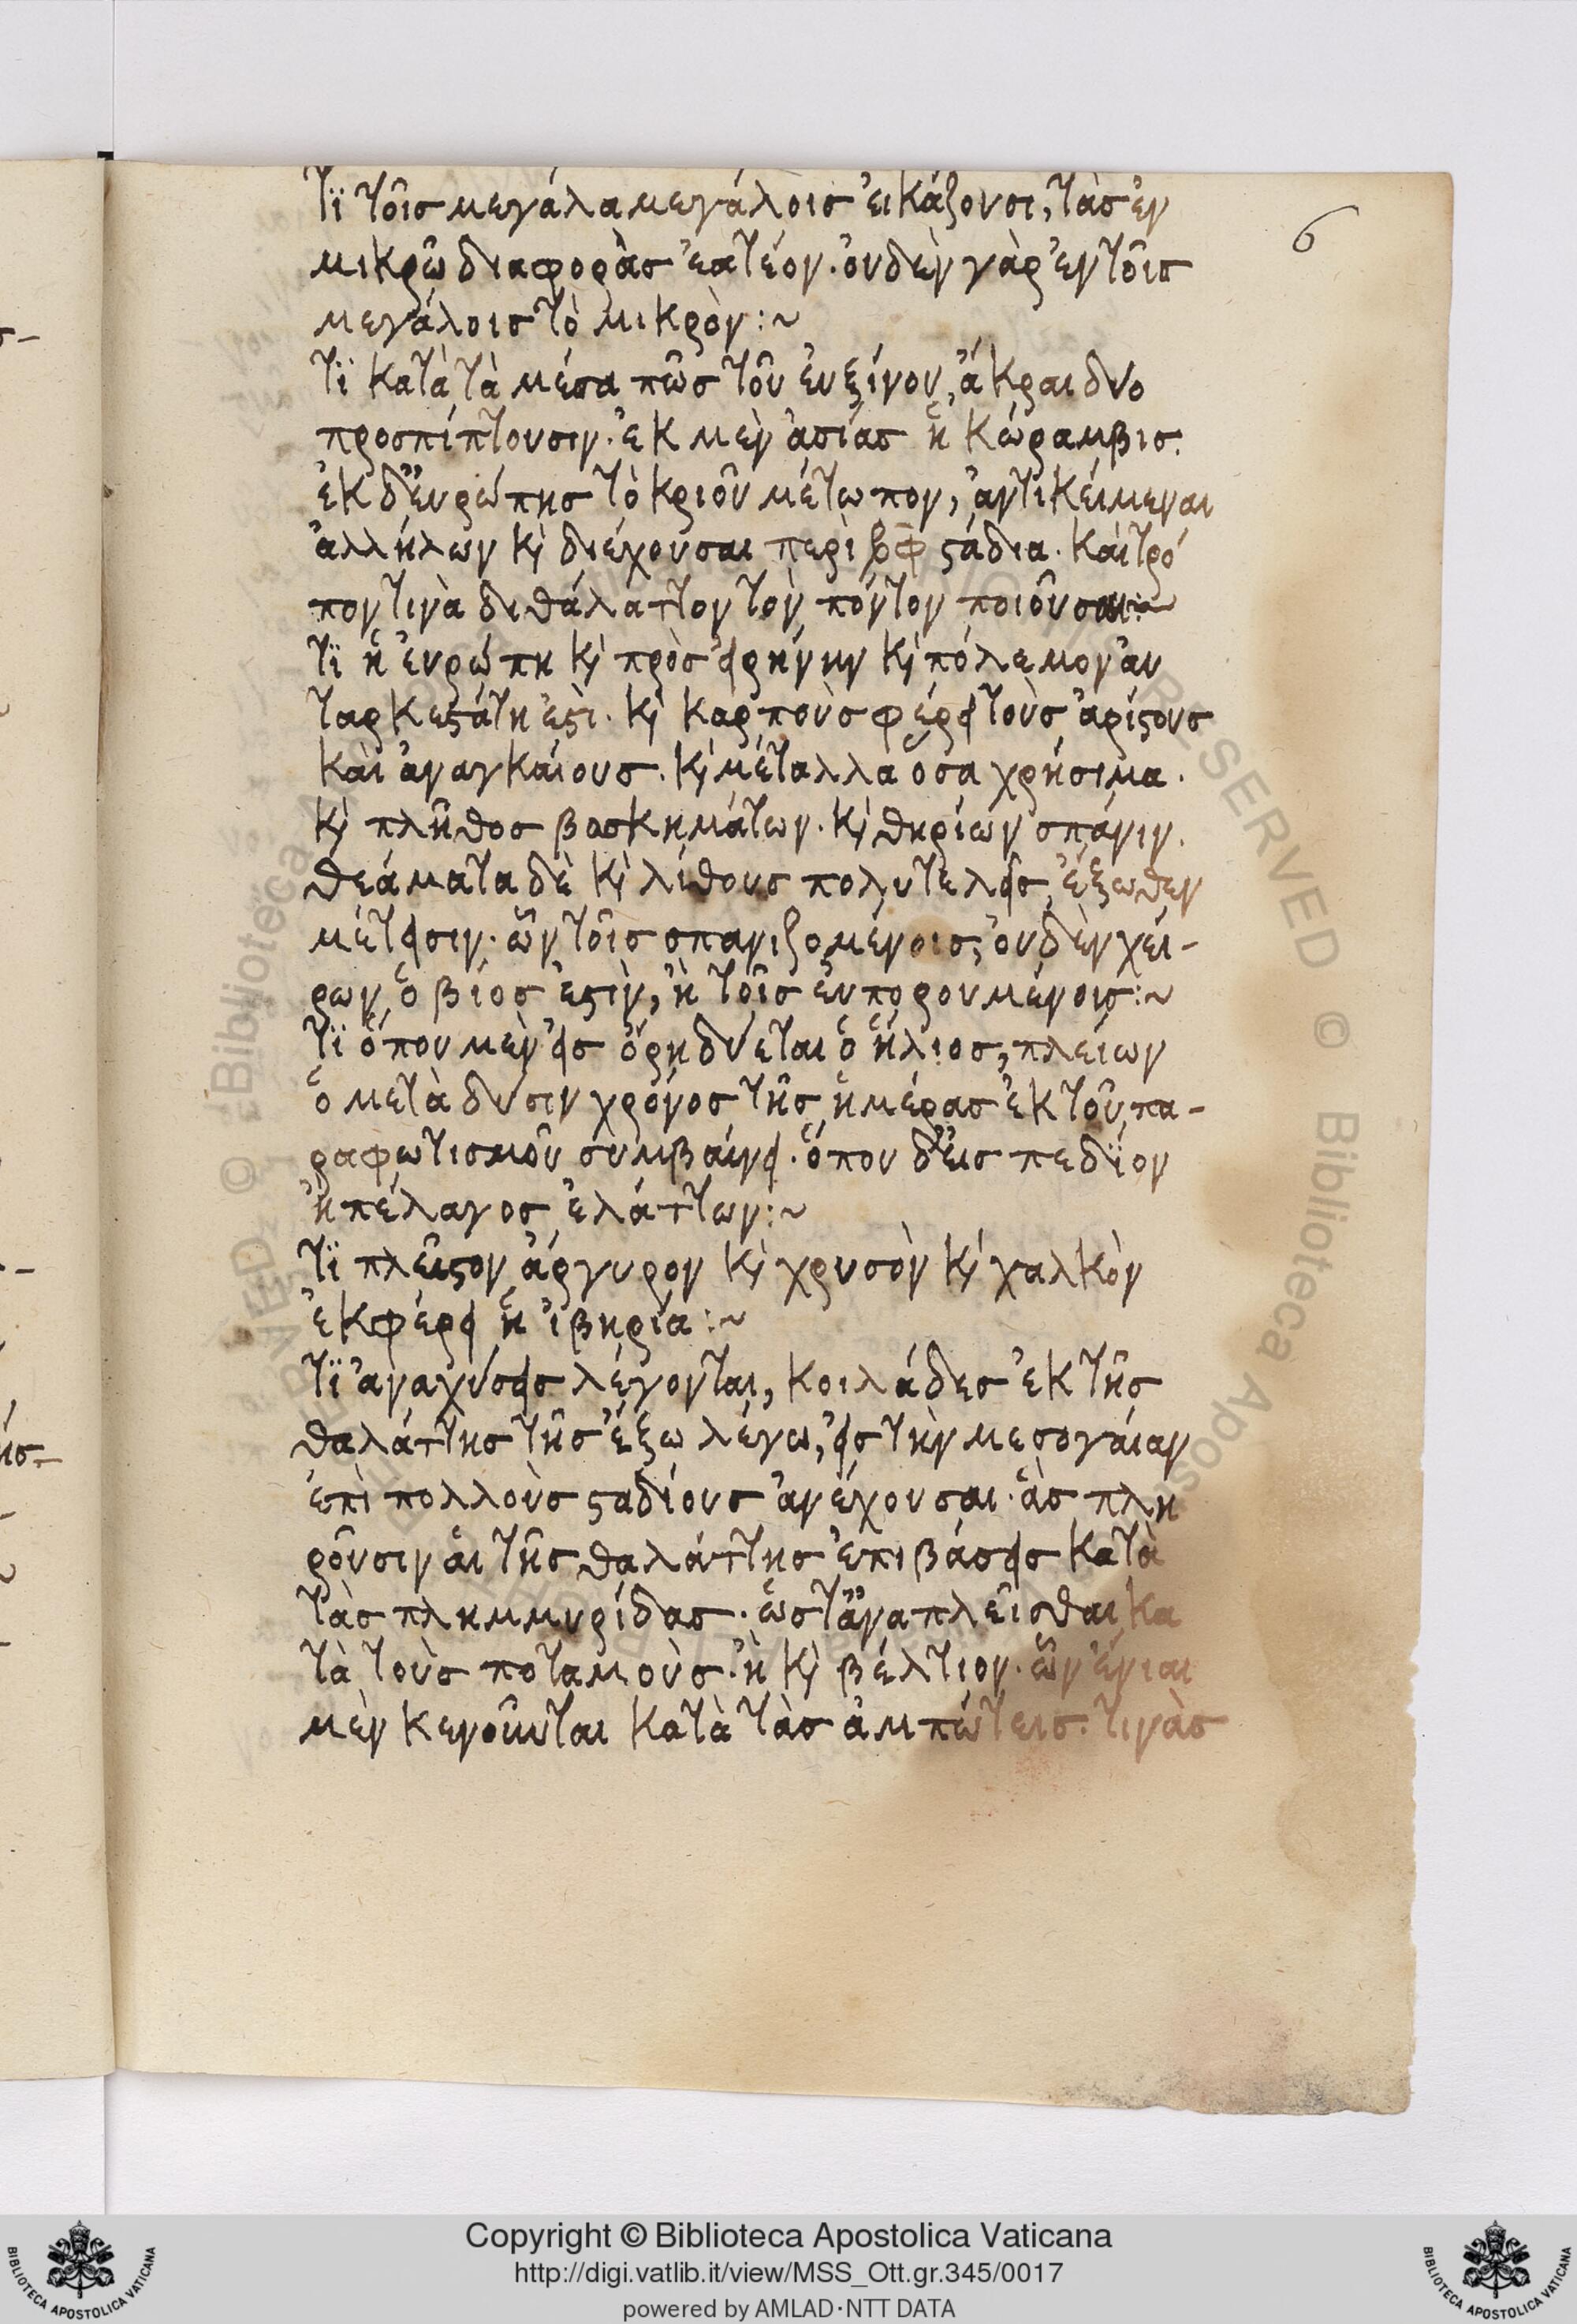 Τϊ τοῖσ μεγάλα μεγάλοισ ἐικάζουσι, τὰσ ἐν
μικρῶ διαφορὰσ ἐατέον. ὀυδὲν γὰρ ἐν τοῖσ
μεγάλοισ τὸ μικρὸν :~
Τϊ κατὰ τὰ μέσα πῶσ τοῦ ἐυξίνου, ἄκραι δυο
προσπίπτουσιν. ἐκ μὲν ἀσίασ ἡ κώραμβισ.
ἐκ δ' ἐυρώπησ τὸ κριοῦ μέτωπον, ἀντικείμεναι
ἀλλήλων κὶ διέχουσαι περὶ ͵βφ ϛάδια. κὰι τρό
πον τινὰ διθάλαττον τὸν πόντον ποιοῦσαι:~
Τϊ ἡ ἐυρώπη κὶ πρὸσ ἐιρήνην κὶ πόλεμον ἀυ
ταρκεϛάτη ἐϛὶ. κὶ καρποὺσ φέρει τοὺσ ἀρίϛουσ
κὰι ἀναγκάιουσ. κὶ μέταλλα ὅσα χρήσιμα.
κὶ πλῆθοσ βοσκημάτων. κὶ θηρίων σπάνιν.
θεάματα δὲ κὶ λίθουσ πολυτελεῖσ ἔξωθεν
μέτεισιν. ὧν τοῖσ σπανιζομένοισ, ὀυδὲν χέι-
ρων ὁ βίοσ ἐϛὶν, ἢ τοῖσ ἐυπορουμένοισ:~
Τϊ ὅπου μὲν ἐισ ὄρη δύεται ὁ ἥλιοσ, πλείων
ὁ μετὰ δύσιν χρόνοσ τῆσ ἡμέρασ ἐκ τοῦ πα-
ραφωτισμοῦ συμβαίνει. ὅπου δ' ἐισ πεδϊον
ἢ πέλαγοσ ἐλάττων:~
Τϊ πλεῖϛον ἄργυρον κὶ χρυσὸν κὶ χαλκὸν
ἐκφέρει ἡ ἰβηρία:~
Τϊ ἀναχύσεισ λέγονται, κοιλάδεσ ἐκ τῆσ
θαλάττησ τῆσ ἔξω λέγω, ἐισ τὴν μεσογάιαν
ἐπὶ πολλοὺσ ϛαδίουσ ἀνέχουσαι. ἃσ πλη
ροῦσιν ἁι τῆσ θαλάττησ ἐπιβάσεισ κατὰ
τὰσ πλημμυρίδασ. ὥσ τ' ἀναπλεῖσθαι κα
τὰ τοὺσ ποταμοὺσ. ἢ κὶ βέλτιον. ὧν ἔνιαι
μὲν κενοῦνται κατὰ τὰσ ἀμπώτεισ. τινὰσ
6
Copyright © Biblioteca Apostolica Vaticana
http://digi.vatlib.it/view/MSS_Ott.gr.345/0017
powered by AMLAD·NTT DATA